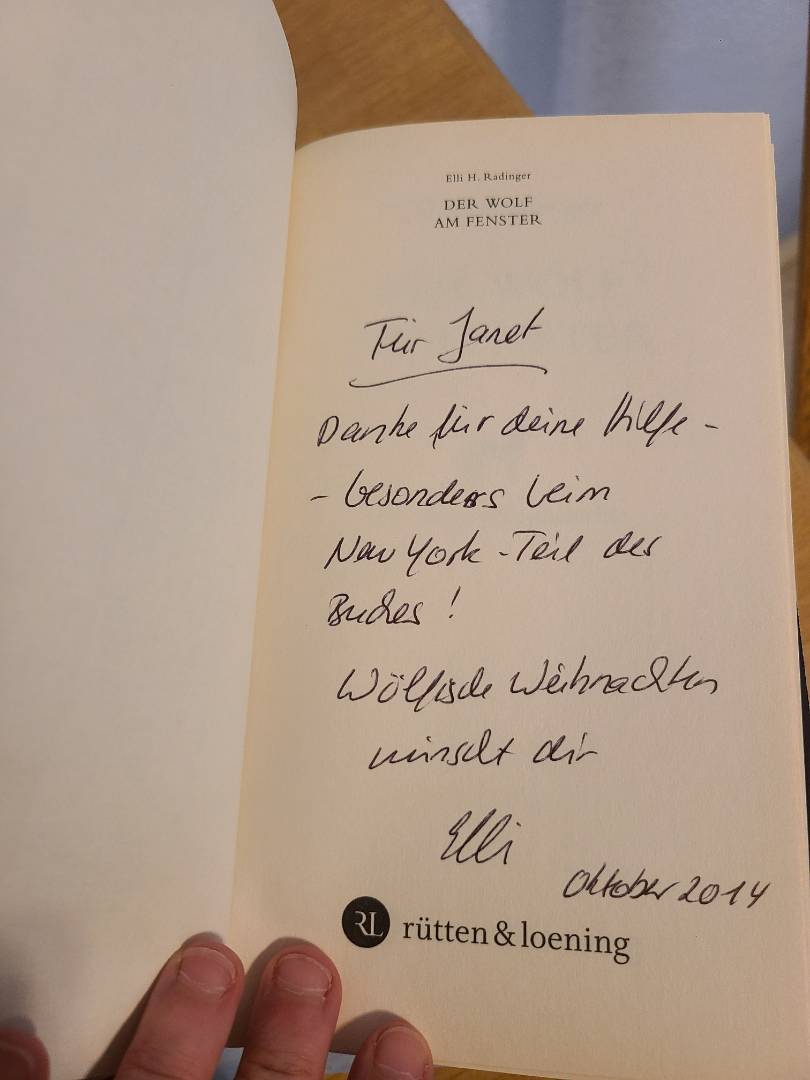 Elli H. Radinger
DER WOLF
AM FENSTER
Für Janet
Danke für deine Hilfe -
- besonders beim
New York - Teil des
Buches !
Wölfische Weihnachten
wünscht dir
Elli
Oktober 2014
RL rütten & loening